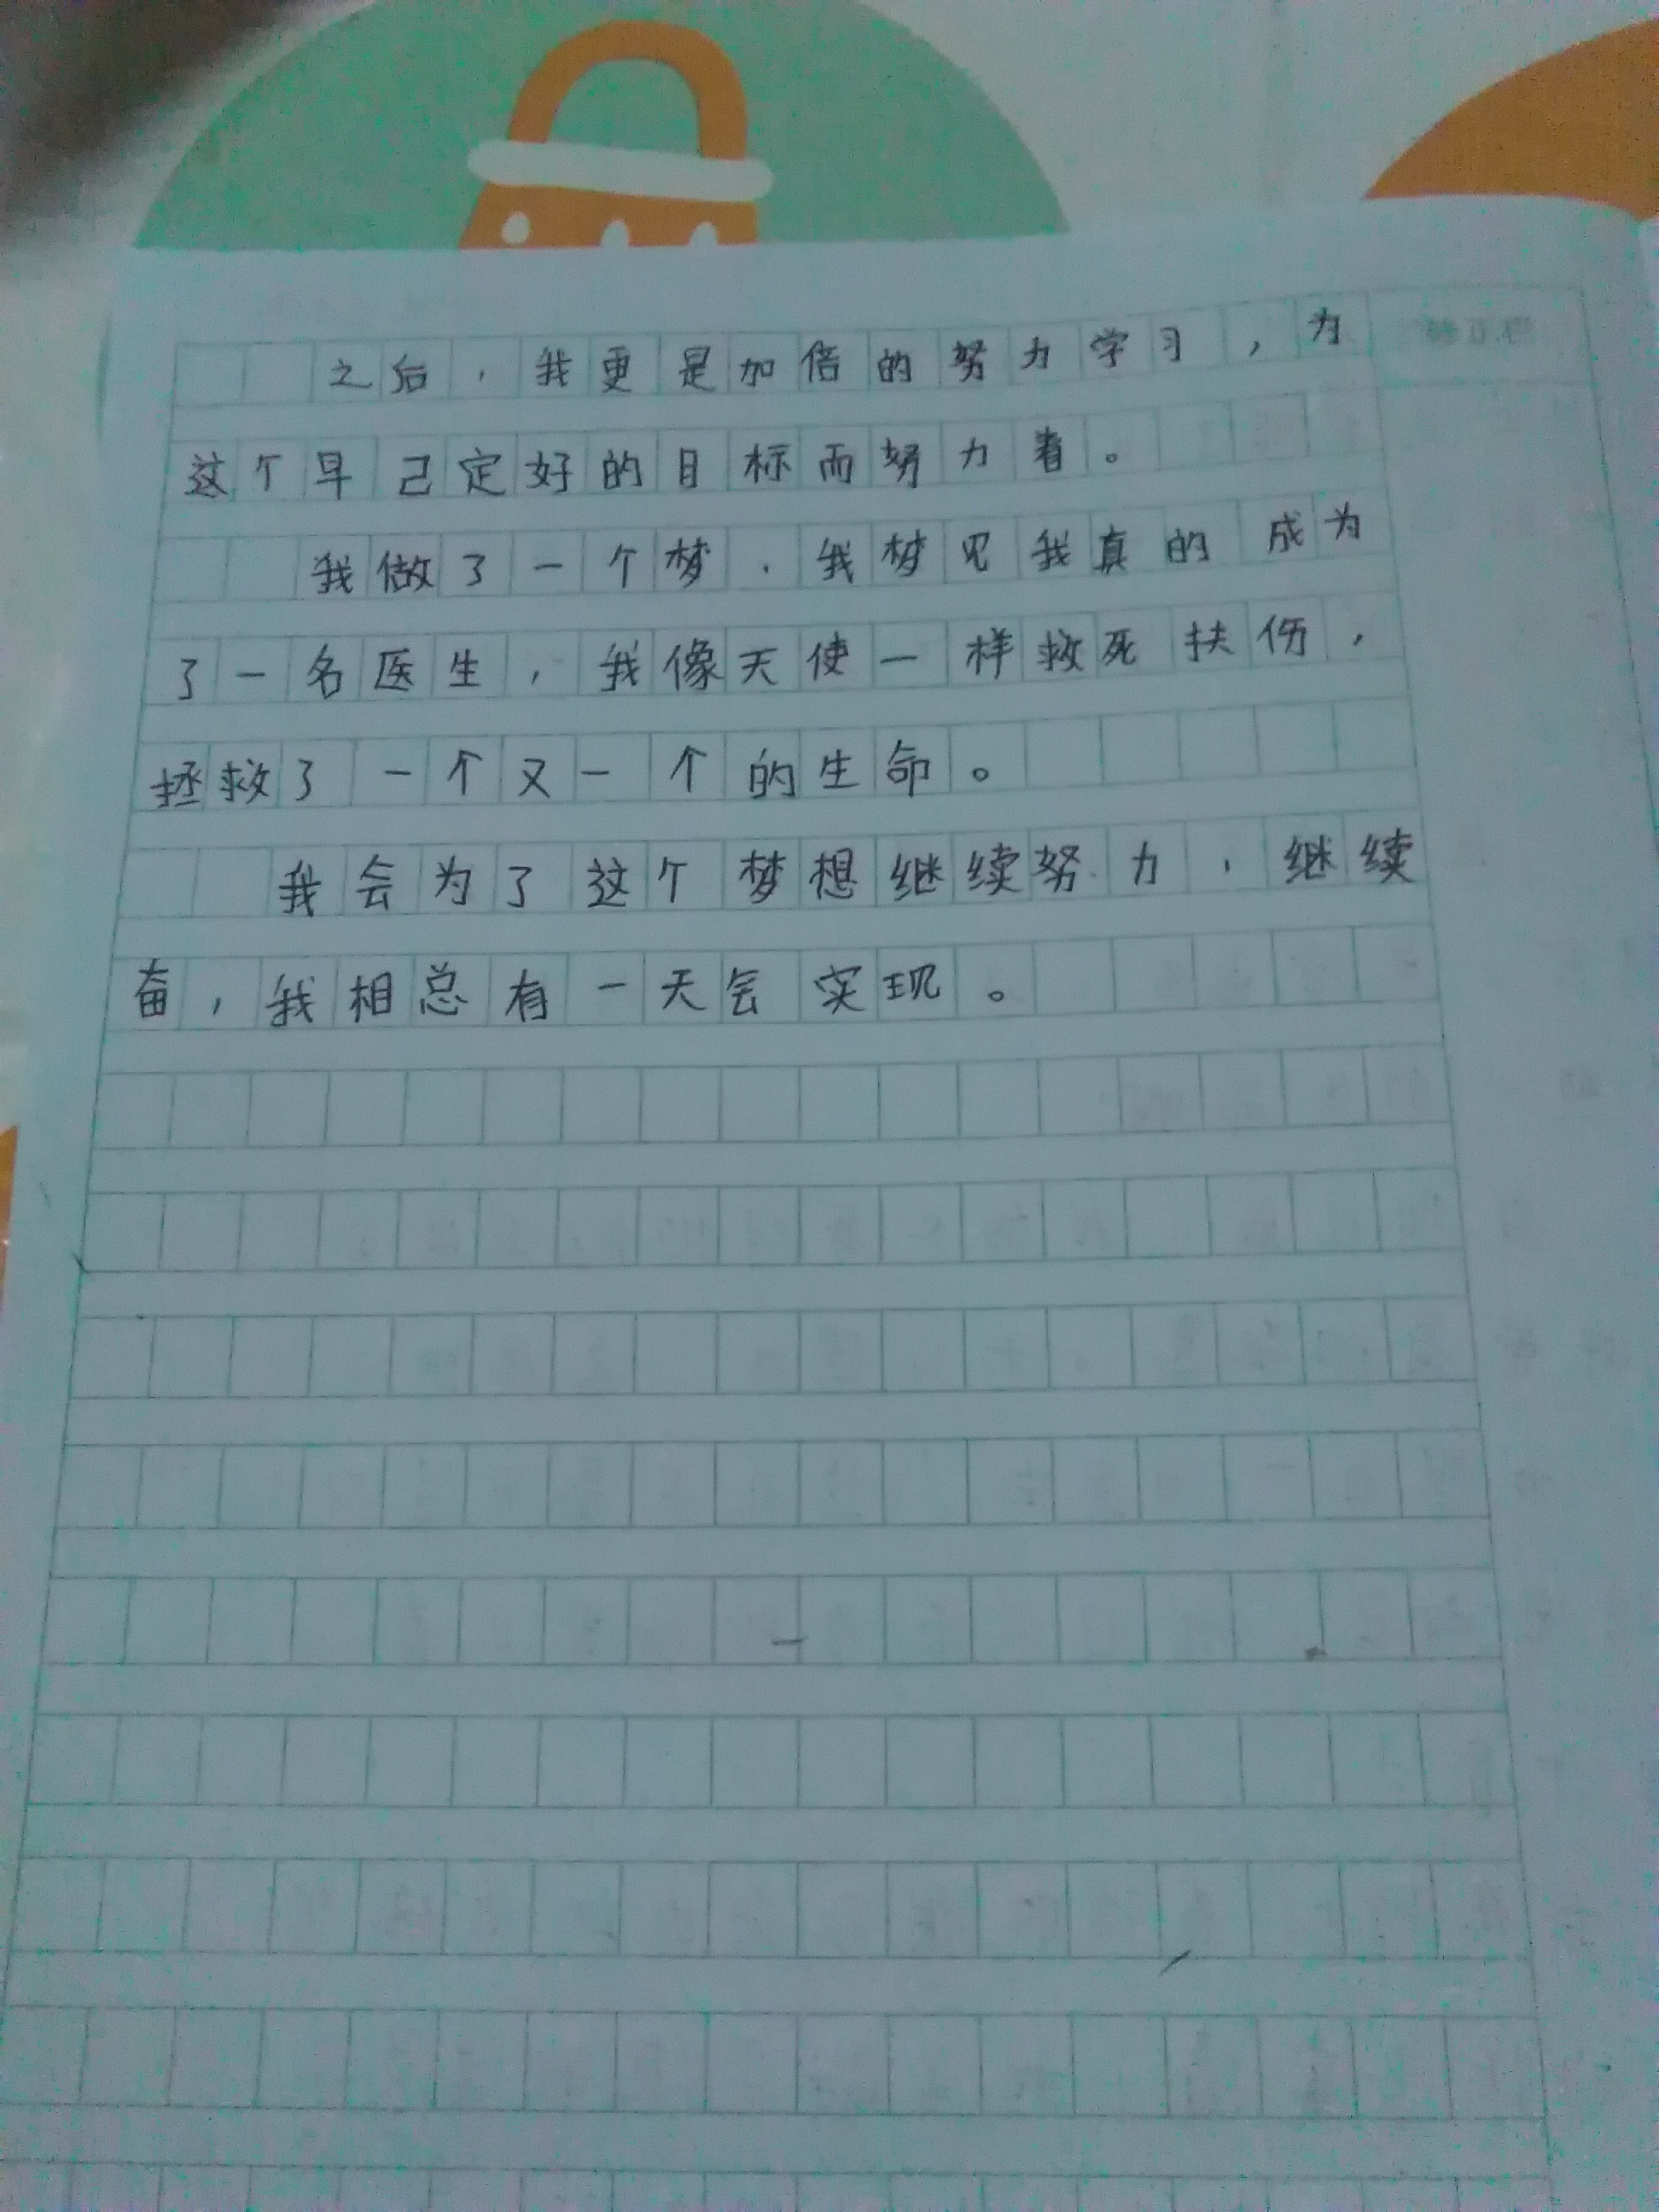 之后，我更是加倍的努力学习，为
这个早己定好的目标而努力着。
我做了一个梦，我梦见我真的成为
了一名医生，我像天使一样救死扶伤，
拯救了一个又一个的生命。
我会为了这个梦想继续努力，继续
奋，我相总有一天会实现。